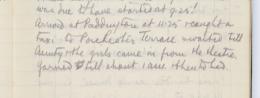 was due to have started at 9.25!
Arrived at Paddington at 11.25 & caught a
taxi to Porchester Terrace & waited till
Aunty & the girls came in from the theatre
jawed till about 1 am & then to bed.